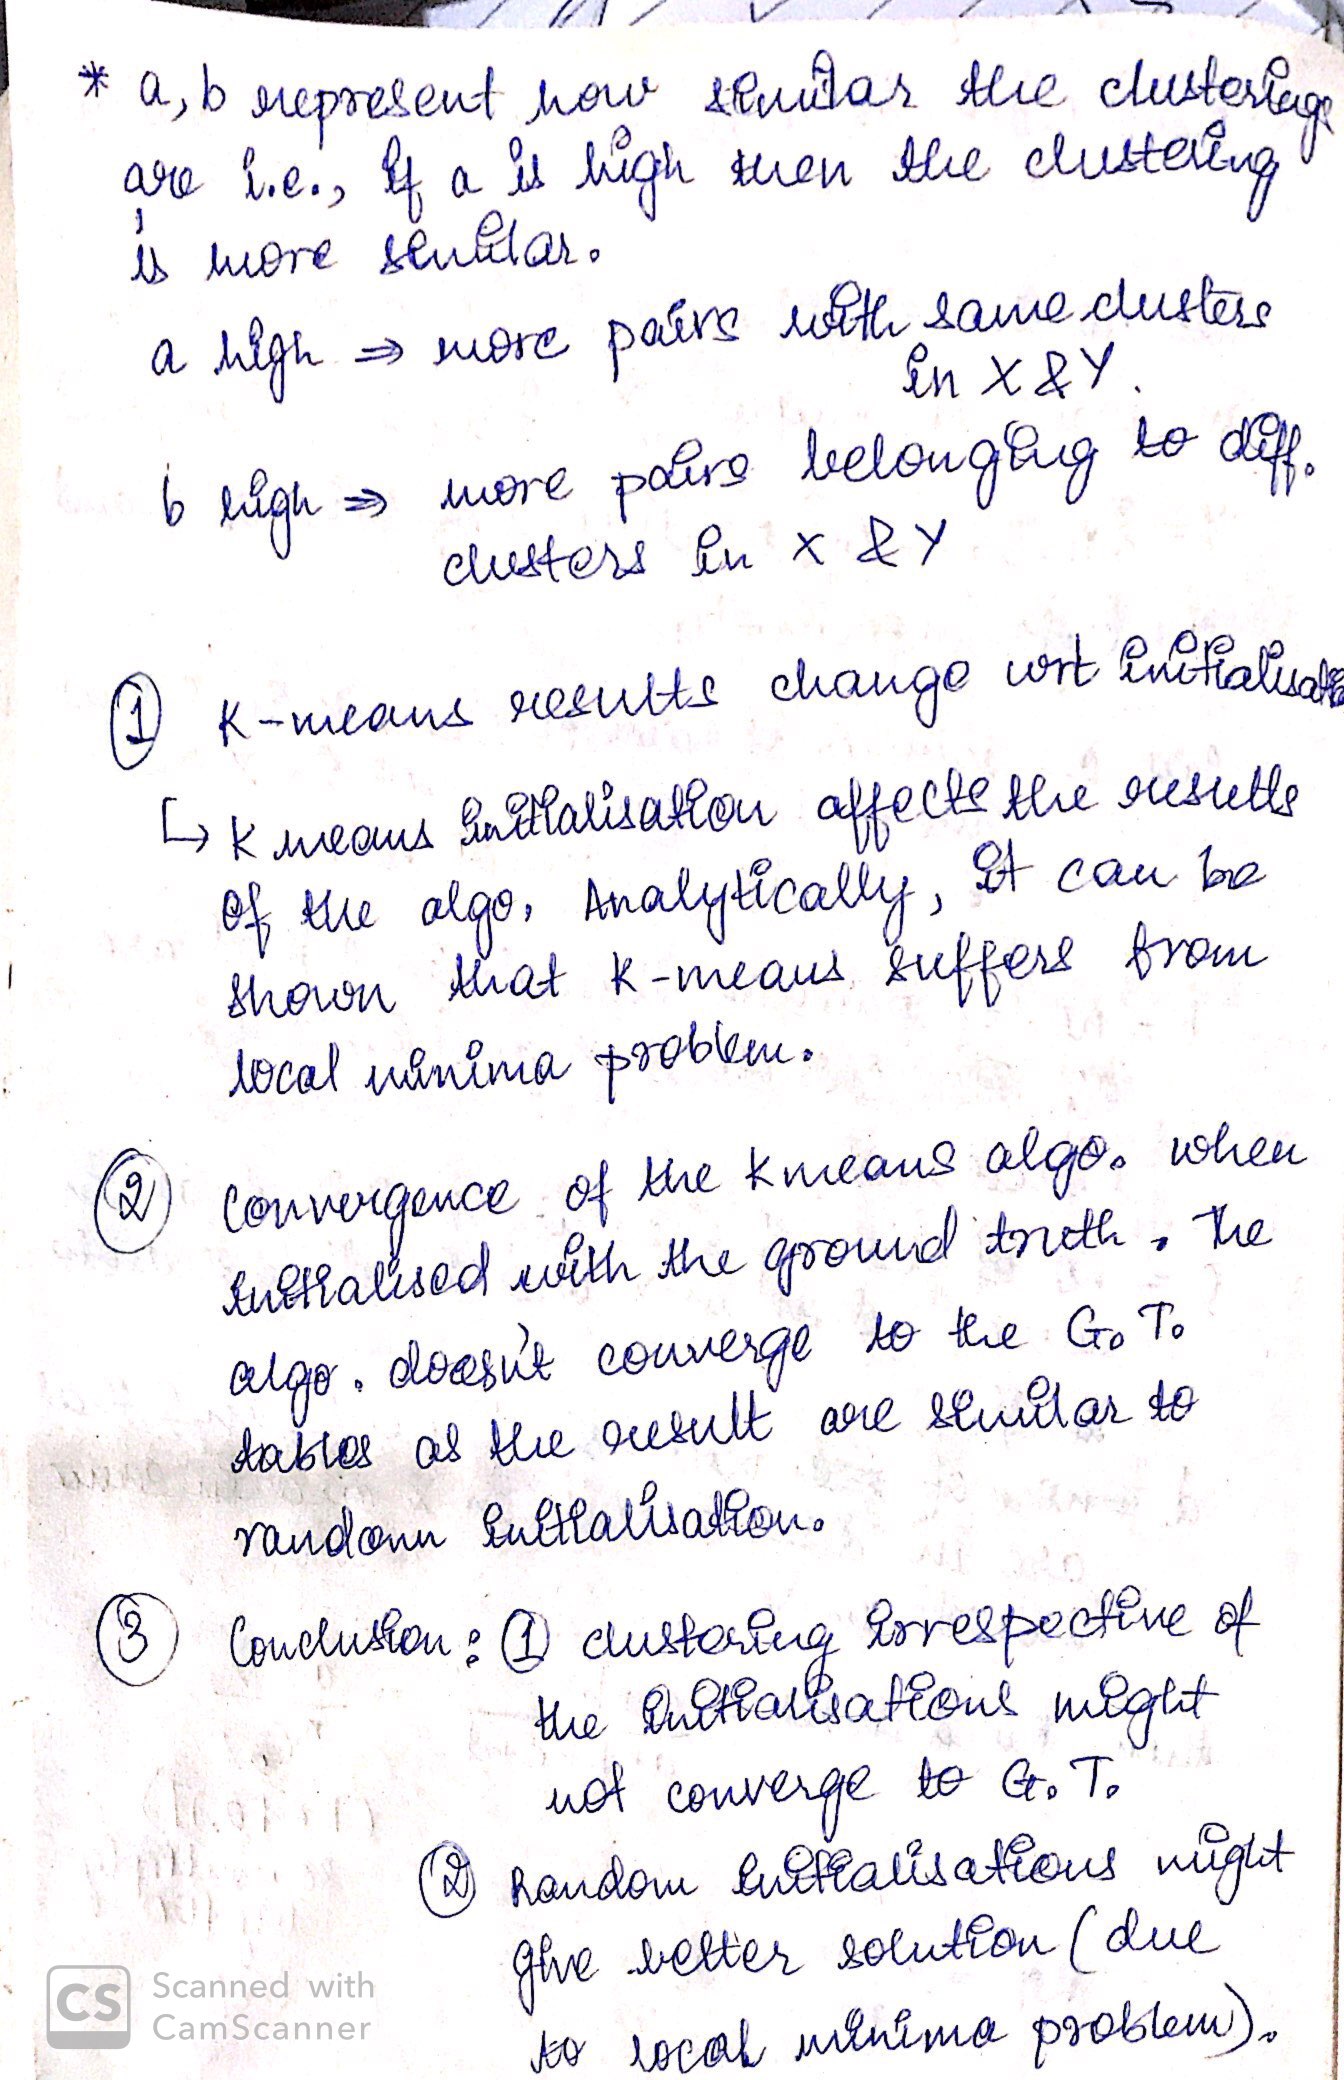 * a, b represent how similar the clusterings
are i.e., if a is high then the clustering
is more similar.
a high ⇒ more pairs with same clusters
in X & Y.
b high ⇒ more pairs belonging to diff.
clusters in X & Y
① K-means results change wrt
↳ K means initialisation affects the results
of the algo. Analytically, it can be
shown that K-means suffers from
local minima problem.
② Convergence of the K means algo. when
initialised with the ground truth. The
algo. doesn't converge to the G.T.
as the result are similar to
random initialisation.
③ Conclusion: ① clustering irrespective of
the initialisations might
not converge to G.T.
② Random initialisations might
give better solution (due
to local minima problem).
CS Scanned with
CamScanner